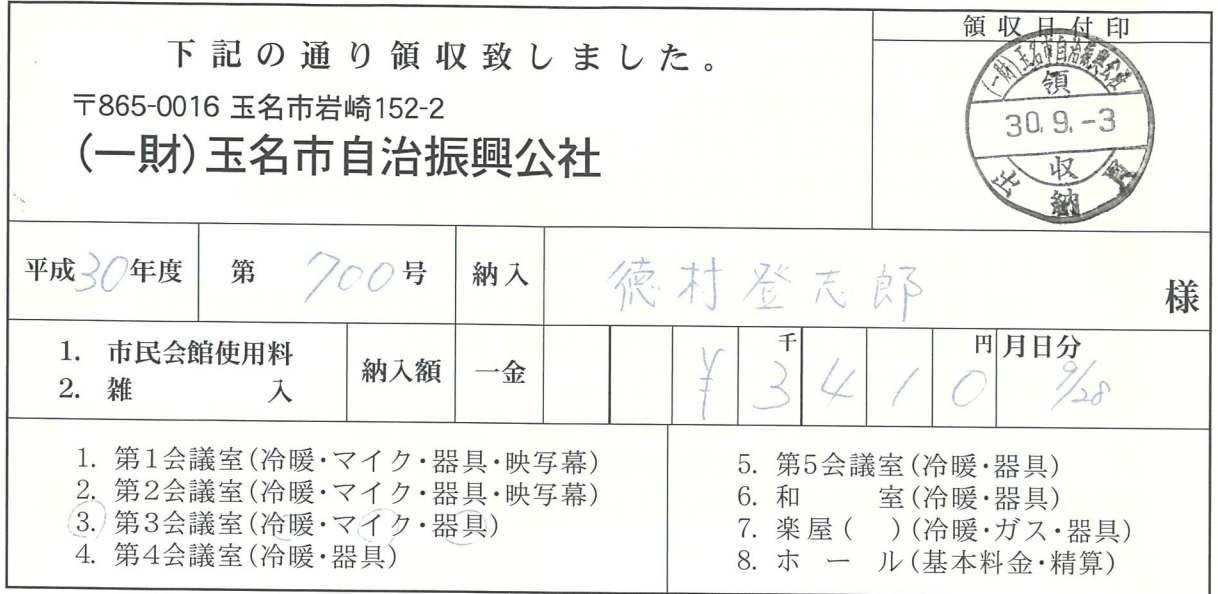 領収日付印
下記の通り領収致しました。
〒865-0016 玉名市岩崎152-2
(一財)玉名市自治振興公社
(一財)玉名市自治振興公社
領
30.9.-3
収
出納員
平成30年度 第 700号 納入 徳村登志郎 様
1. 市民会館使用料
2. 雑 入
納入額 一金 ¥3410 千 円 月日分 9/28
1. 第1会議室(冷暖・マイク・器具・映写幕)
2. 第2会議室(冷暖・マイク・器具・映写幕)
3. 第3会議室(冷暖・マイク・器具)
4. 第4会議室(冷暖・器具)
5. 第5会議室(冷暖・器具)
6. 和 室(冷暖・器具)
7. 楽屋( )(冷暖・ガス・器具)
8. ホール(基本料金・精算)